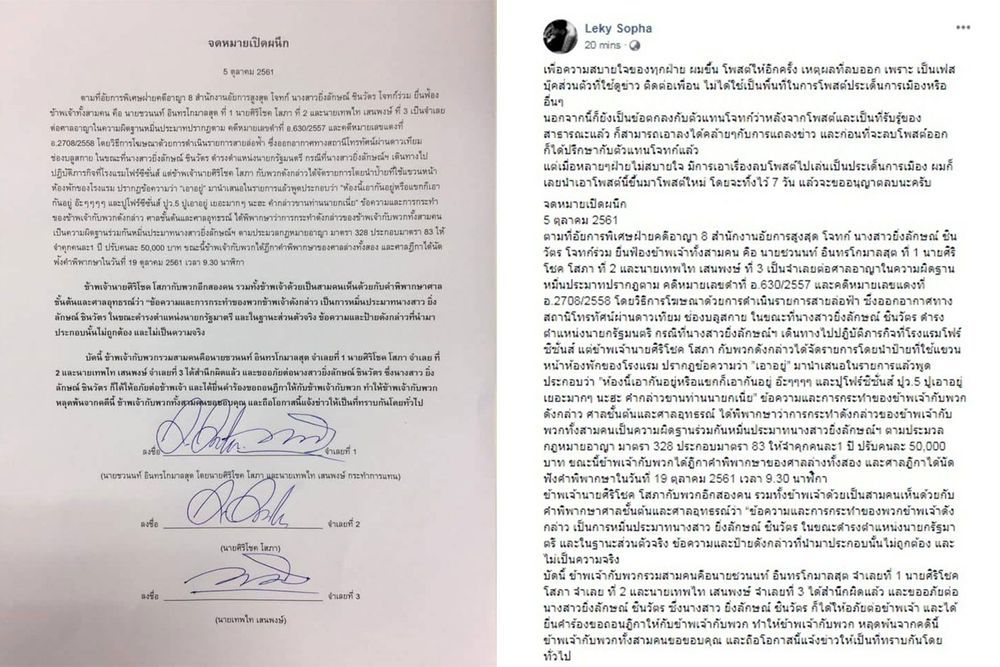 จดหมายเปิดผนึก
5 ตุลาคม 2561
ตามที่อัยการพิเศษฝ่ายคดีอาญา 8 สำนักงานอัยการสูงสุด โจทก์ นางสาวยิ่งลักษณ์ ชินวัตร โจทก์ร่วม ยื่นฟ้อง
ข้าพเจ้าทั้งสามคน คือ นายชวนนท์ อินทรโกมาลสุต ที่ 1 นายศิริโชค โสภา ที่ 2 และนายเทพไท เสนพงศ์ ที่ 3 เป็นจำเลย
ต่อศาลอาญาในความผิดฐานหมิ่นประมาทปรากฏตาม คดีหมายเลขดำที่ อ.630/2557 และคดีหมายเลขแดงที่
อ.2708/2558 โดยวิธีการโฆษณาด้วยการดำเนินรายการสายล่อฟ้า ซึ่งออกอากาศทางสถานีโทรทัศน์ผ่านดาวเทียม
ช่องบลูสกาย ในขณะที่นางสาวยิ่งลักษณ์ ชินวัตร ดำรงตำแหน่งนายกรัฐมนตรี กรณีที่นางสาวยิ่งลักษณ์ฯ เดินทางไป
ปฏิบัติภารกิจที่โรงแรมโฟร์ซีซั่นส์ แต่ข้าพเจ้านายศิริโชค โสภา กับพวกดังกล่าวได้จัดรายการโดยนำป้ายที่ใช้แขวนหน้า
ห้องพักของโรงแรม ปรากฏข้อความว่า "เอาอยู่" มานำเสนอในรายการแล้วพูดประกอบว่า "ห้องนี้เอากันอยู่หรือแขกก็เอา
กันอยู่ อ๊ะๆๆๆๆ และปูโฟร์ซีซั่นส์ ปูว.5 ปูเอาอยู่ เยอะมากๆ นะฮะ คำกล่าวขานท่านนายกเนี่ย" ข้อความและการกระทำ
ของข้าพเจ้ากับพวกดังกล่าว ศาลชั้นต้นและศาลอุทธรณ์ ได้พิพากษาว่าการกระทำดังกล่าวของข้าพเจ้ากับพวกทั้งสามคน
เป็นความผิดฐานร่วมกันหมิ่นประมาทนางสาวยิ่งลักษณ์ฯ ตามประมวลกฎหมายอาญา มาตรา 328 ประกอบมาตรา 83 ให้
จำคุกคนละ1 ปี ปรับคนละ 50,000 บาท ขณะนี้ข้าพเจ้ากับพวกได้ฎีกาคำพิพากษาของศาลล่างทั้งสอง และศาลฎีกาได้นัด
ฟังคำพิพากษาในวันที่ 19 ตุลาคม 2561 เวลา 9.30 นาฬิกา
ข้าพเจ้านายศิริโชค โสภากับพวกอีกสองคน รวมทั้งข้าพเจ้าด้วยเป็นสามคนเห็นด้วยกับคำพิพากษาศาล
ชั้นต้นและศาลอุทธรณ์ว่า "ข้อความและการกระทำของพวกข้าพเจ้าดังกล่าว เป็นการหมิ่นประมาทนางสาว ยิ่ง
ลักษณ์ ชินวัตร ในขณะดำรงตำแหน่งนายกรัฐมาตรี และในฐานะส่วนตัวจริง ข้อความและป้ายดังกล่าวที่นำมา
ประกอบนั้นไม่ถูกต้อง และไม่เป็นความจริง
บัดนี้ ข้าพเจ้ากับพวกรวมสามคนคือนายชวนนท์ อินทรโกมาลสุต จำเลยที่ 1 นายศิริโชค โสภา จำเลย ที่
2 และนายเทพไท เสนพงศ์ จำเลยที่ 3 ได้สำนึกผิดแล้ว และขออภัยต่อนางสาวยิ่งลักษณ์ ชินวัตร ซึ่งนางสาว ยิ่ง
ลักษณ์ ชินวัตร ก็ได้ให้อภัยต่อข้าพเจ้า และได้ยื่นคำร้องขอถอนฎีกาให้กับข้าพเจ้ากับพวก ทำให้ข้าพเจ้ากับพวก
หลุดพ้นจากคดีนี้ ข้าพเจ้ากับพวกทั้งสามคนขอขอบคุณ และถือโอกาสนี้แจ้งข่าวให้เป็นที่ทราบกันโดยทั่วไป
ลงชื่อ จำเลยที่ 1
(นายชวนนท์ อินทรโกมาลสุต โดยนายศิริโชค โสภา และนายเทพไท เสนพงษ์ กระทำการแทน)
ลงชื่อ จำเลยที่ 2
(นายศิริโชค โสภา)
ลงชื่อ จำเลยที่ 3
(นายเทพไท เสนพงษ์)
Leky Sopha
20 mins
เพื่อความสบายใจของทุกฝ่าย ผมขึ้น โพสต์ให้อีกครั้ง เหตุผลที่ลบออก เพราะ เป็นเฟส
บุ๊คส่วนตัวที่ใช้ดูข่าว ติดต่อเพื่อน ไม่ได้ใช้เป็นพื้นที่ในการโพสต์ประเด็นการเมืองหรือ
อื่นๆ
นอกจากนี้ก็ยังเป็นข้อตกลงกับตัวแทนโจทก์ว่าหลังจากโพสต์และเป็นที่รับรู้ของ
สาธารณะแล้ว ก็สามารถเอาลงได้คล้ายๆกับการแถลงข่าว และก่อนที่จะลบโพสต์ออก
ก็ได้ปรึกษากับตัวแทนโจทก์แล้ว
แต่เมื่อหลายๆฝ่ายไม่สบายใจ มีการเอาเรื่องลบโพสต์ไปเล่นเป็นประเด็นการเมือง ผมก็
เลยนำเอาโพสต์นี้ขึ้นมาโพสต์ใหม่ โดยจะทิ้งไว้ 7 วัน แล้วจะขออนุญาตลบนะครับ
จดหมายเปิดผนึก
5 ตุลาคม 2561
ตามที่อัยการพิเศษฝ่ายคดีอาญา 8 สำนักงานอัยการสูงสุด โจทก์ นางสาวยิ่งลักษณ์ ชิน
วัตร โจทก์ร่วม ยื่นฟ้องข้าพเจ้าทั้งสามคน คือ นายชวนนท์ อินทรโกมาลสุต ที่ 1 นายศิริ
โชค โสภา ที่ 2 และนายเทพไท เสนพงศ์ ที่ 3 เป็นจำเลยต่อศาลอาญาในความผิดฐาน
หมิ่นประมาทปรากฏตาม คดีหมายเลขดำที่ อ.630/2557 และคดีหมายเลขแดงที่
อ.2708/2558 โดยวิธีการโฆษณาด้วยการดำเนินรายการสายล่อฟ้า ซึ่งออกอากาศทาง
สถานีโทรทัศน์ผ่านดาวเทียม ช่องบลูสกาย ในขณะที่นางสาวยิ่งลักษณ์ ชินวัตร ดำรง
ตำแหน่งนายกรัฐมนตรี กรณีที่นางสาวยิ่งลักษณ์ฯ เดินทางไปปฏิบัติภารกิจที่โรงแรมโฟร์
ซีซั่นส์ แต่ข้าพเจ้านายศิริโชค โสภา กับพวกดังกล่าวได้จัดรายการโดยนำป้ายที่ใช้แขวน
หน้าห้องพักของโรงแรม ปรากฏข้อความว่า "เอาอยู่" มานำเสนอในรายการแล้วพูด
ประกอบว่า "ห้องนี้เอากันอยู่หรือแขกก็เอากันอยู่ อ๊ะๆๆๆๆ และปูโฟร์ซีซั่นส์ ปูว.5 ปูเอาอยู่
เยอะมากๆ นะฮะ คำกล่าวขานท่านนายกเนี่ย" ข้อความและการกระทำของข้าพเจ้ากับพวก
ดังกล่าว ศาลชั้นต้นและศาลอุทธรณ์ ได้พิพากษาว่าการกระทำดังกล่าวของข้าพเจ้ากับ
พวกทั้งสามคนเป็นความผิดฐานร่วมกันหมิ่นประมาทนางสาวยิ่งลักษณ์ฯ ตามประมวล
กฎหมายอาญา มาตรา 328 ประกอบมาตรา 83 ให้จำคุกคนละ1 ปี ปรับคนละ 50,000
บาท ขณะนี้ข้าพเจ้ากับพวกได้ฎีกาคำพิพากษาของศาลล่างทั้งสอง และศาลฎีกาได้นัด
ฟังคำพิพากษาในวันที่ 19 ตุลาคม 2561 เวลา 9.30 นาฬิกา
ข้าพเจ้านายศิริโชค โสภากับพวกอีกสองคน รวมทั้งข้าพเจ้าด้วยเป็นสามคนเห็นด้วยกับ
คำพิพากษาศาลชั้นต้นและศาลอุทธรณ์ว่า "ข้อความและการกระทำของพวกข้าพเจ้าดัง
กล่าว เป็นการหมิ่นประมาทนางสาว ยิ่งลักษณ์ ชินวัตร ในขณะดำรงตำแหน่งนายกรัฐมา
ตรี และในฐานะส่วนตัวจริง ข้อความและป้ายดังกล่าวที่นำมาประกอบนั้นไม่ถูกต้อง และ
ไม่เป็นความจริง
บัดนี้ ข้าพเจ้ากับพวกรวมสามคนคือนายชวนนท์ อินทรโกมาลสุต จำเลยที่ 1 นายศิริโชค
โสภา จำเลย ที่ 2 และนายเทพไท เสนพงศ์ จำเลยที่ 3 ได้สำนึกผิดแล้ว และขออภัยต่อ
นางสาวยิ่งลักษณ์ ชินวัตร ซึ่งนางสาว ยิ่งลักษณ์ ชินวัตร ก็ได้ให้อภัยต่อข้าพเจ้า และได้
ยื่นคำร้องขอถอนฎีกาให้กับข้าพเจ้ากับพวก ทำให้ข้าพเจ้ากับพวก หลุดพ้นจากคดีนี้
ข้าพเจ้ากับพวกทั้งสามคนขอขอบคุณ และถือโอกาสนี้แจ้งข่าวให้เป็นที่ทราบกันโดย
ทั่วไป